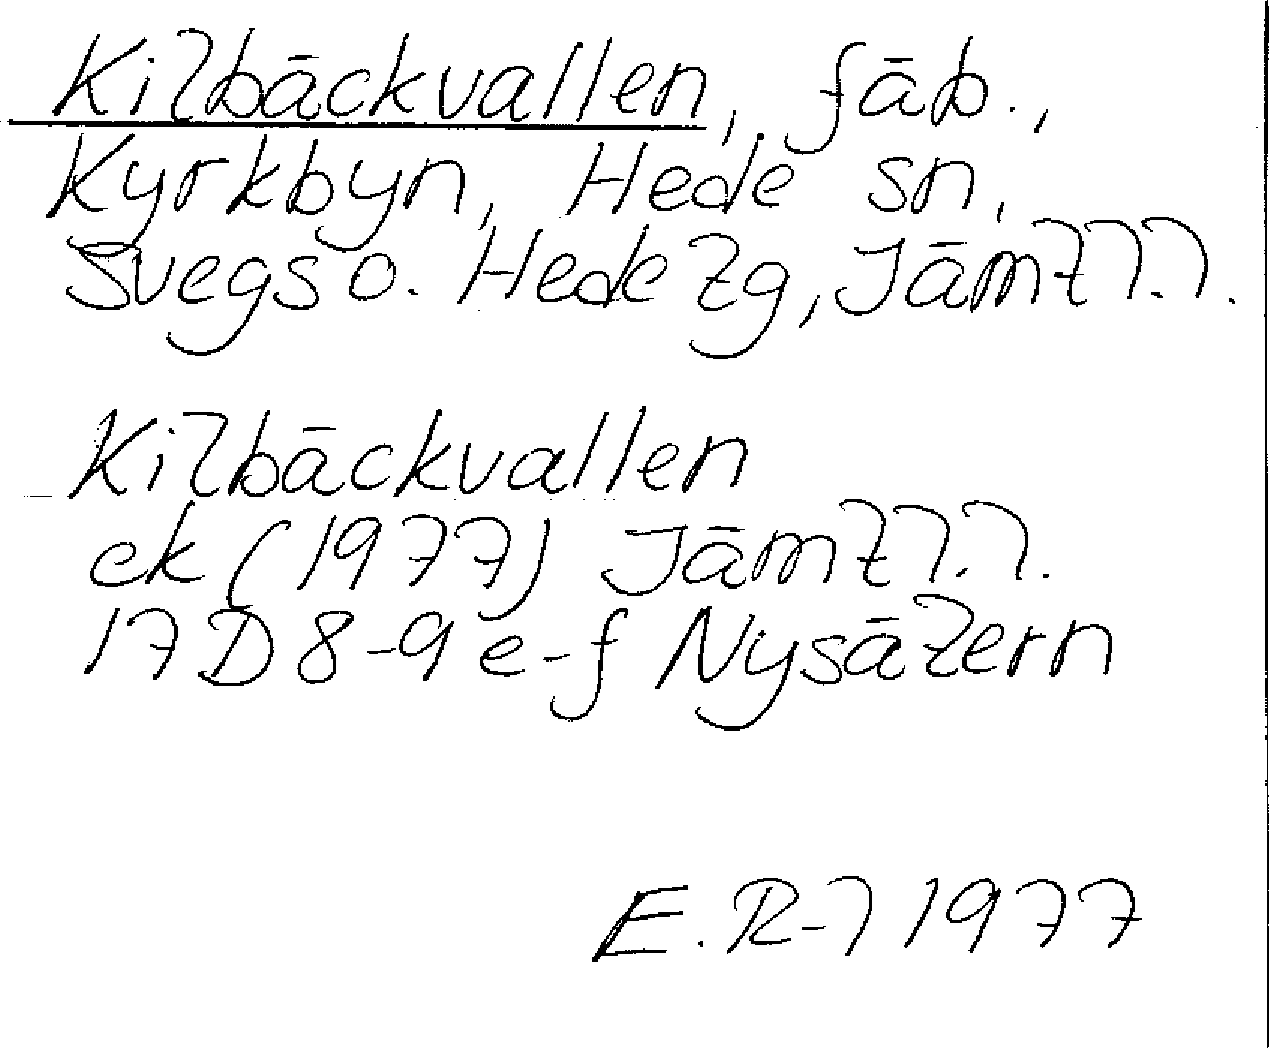 Kilbäckvallen, fäb.,
Kyrkbyn, Hede sn,
Svegs o. Hede tg, Jämtl.l.
Kilbäckvallen
ek (1977) Jämtl.l.
17D 8-9 e-f Nysätern
E.R-l 1977